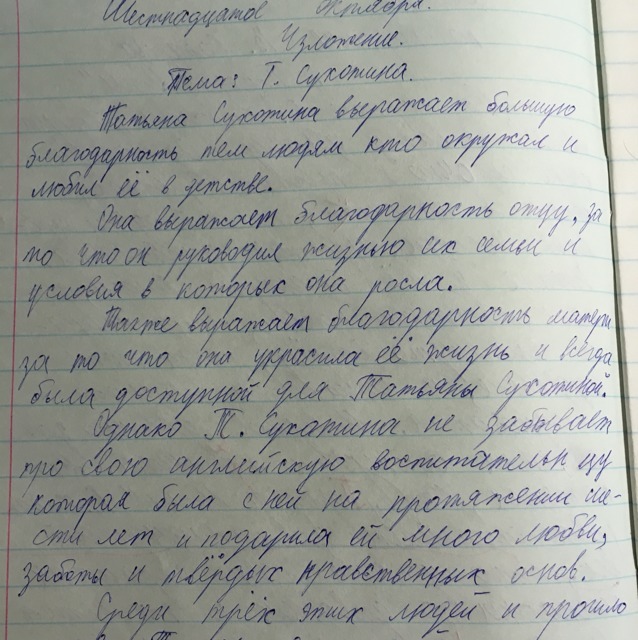 Шестнадцатое Октября.
Изложение.
Тема: Т. Сухотина.
Татьяна Сухотина выражает большую
благодарность тем людям кто окружал и
любил её в детстве.
Она выражает благодарность отцу, за
то что он руководил жизнью их семьи и
условия в которых она росла.
Также выражает благодарность матери
за то что она украсила её жизнь и всегда
была доступной для Татьяны Сухотиной.
Однако Т. Сухотина не забывает
про свою английскую воспитательницу
которая была с ней на протяжении ше-
сти лет и подарила ей много любви,
заботы и твёрдых нравственных основ.
Среди трёх этих людей и прошло